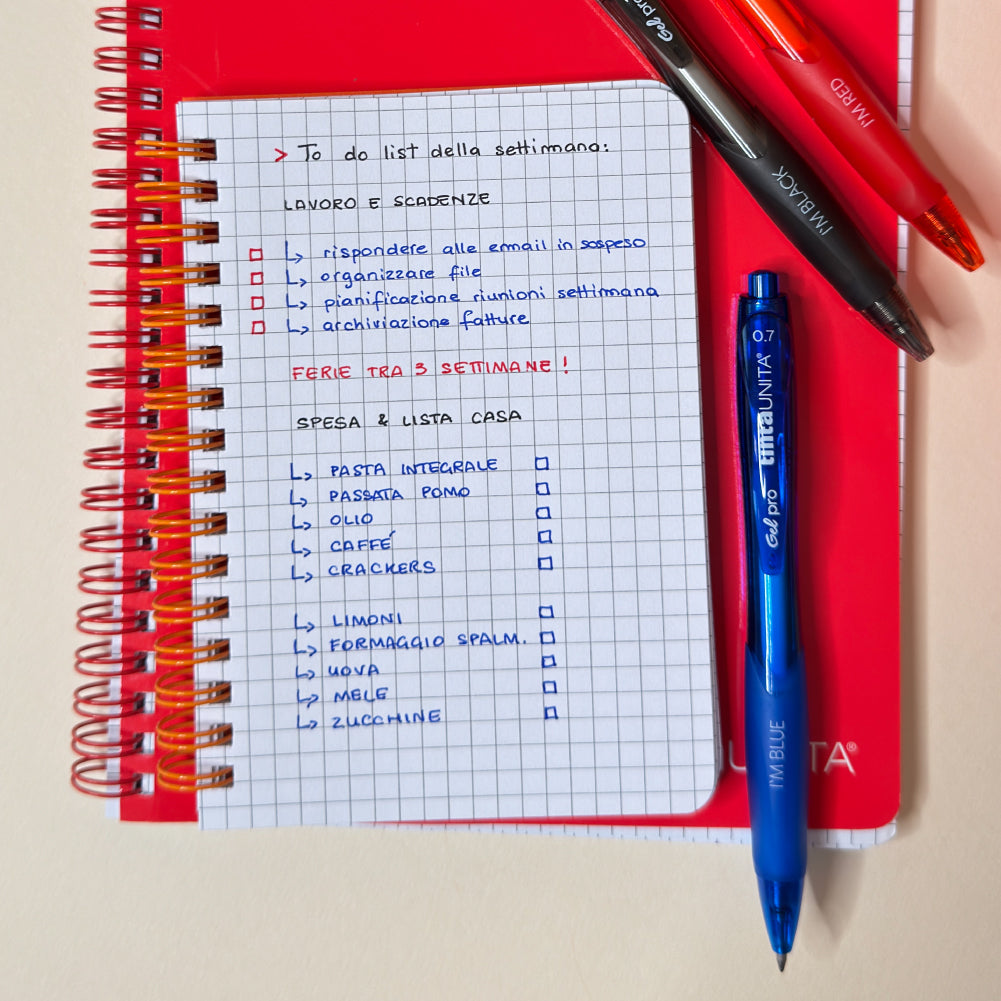 > To do list della settimana:
LAVORO E SCADENZE
↳ rispondere alle email in sospeso
↳ organizzare file
↳ pianificazione riunioni settimana
↳ archiviazione fatture
FERIE TRA 3 SETTIMANE !
SPESA & LISTA CASA
↳ PASTA INTEGRALE
↳ PASSATA POMO
↳ OLIO
↳ CAFFÉ
↳ CRACKERS
↳ LIMONI
↳ FORMAGGIO SPALM.
↳ UOVA
↳ MELE
↳ ZUCCHINE
Gel pro
I'M BLACK
I'M RED
0.7
Gel pro tintaUNITA®
I'M BLUE
UNITA®